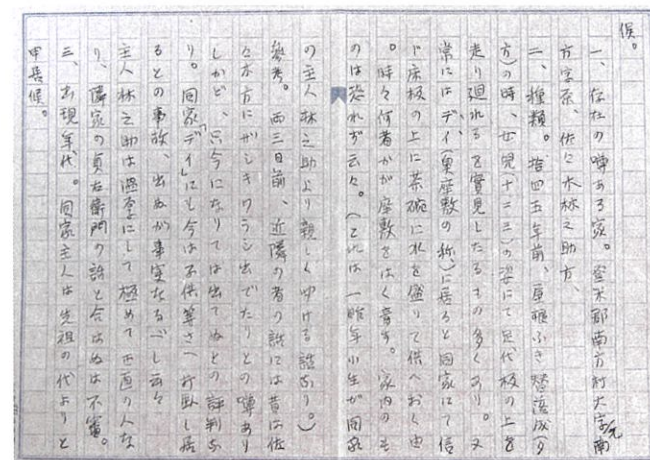 候。
一、存在の噂ある家。登米郡南方村大字南方字原、佐々木林之助方、
二、種類。拾四五年前、屋根ふき替落成(夕
方)の時、女児(十二三)の姿にて足代板の上を
走り廻れるを實見したるもの多くあり。又
常にはデイ(奥座敷の称)に居ると同家にて信
じ床板の上に茶碗に水を盛りて供へおく由
。時々何者かが座敷をはく音す。家内のも
のは恐れず云々。(これは一昨年小生が同家
の主人林之助より親しくゆける話なり。)
参考。両三日前、近隣の者の話には昔は佐
々木方にザシキワラシ出でたりとの噂あり
しかど、只今になりては出でぬとの評判な
り。同家デイにも今は不供箒さへ打臥し居
るとの事故、出ぬが事実なるべし云々
主人林之助は温厚にして極めて正直の人な
り、隣家の貞右衛門の話と合はぬは不審。
三、出現年代。同家主人は先祖の代よりと
申居候。